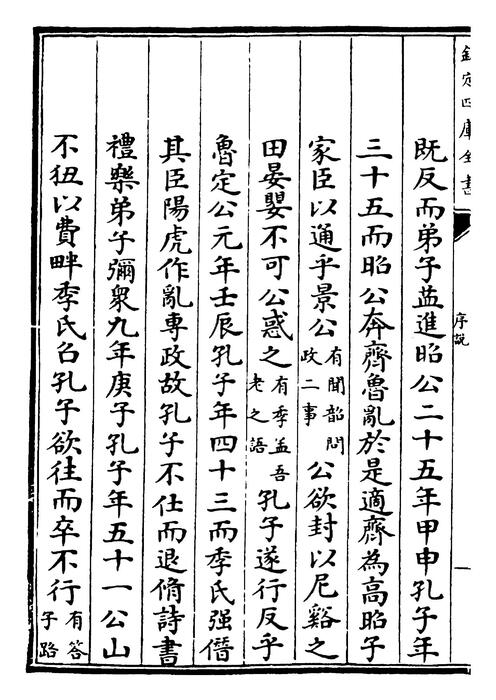 欽定四庫全書
序說
既反而弟子益進昭公二十五年甲申孔子年
三十五而昭公奔齊魯亂於是適齊為高昭子
家臣以通乎景公有聞韶問政二事公欲封以尼谿之
田晏嬰不可公惑之有季孟吾老之語孔子遂行反乎
魯定公元年壬辰孔子年四十三而季氏強僭
其臣陽虎作亂專政故孔子不仕而退脩詩書
禮樂弟子彌衆九年庚子孔子年五十一公山
不狃以費畔季氏召孔子欲往而卒不行有答子路